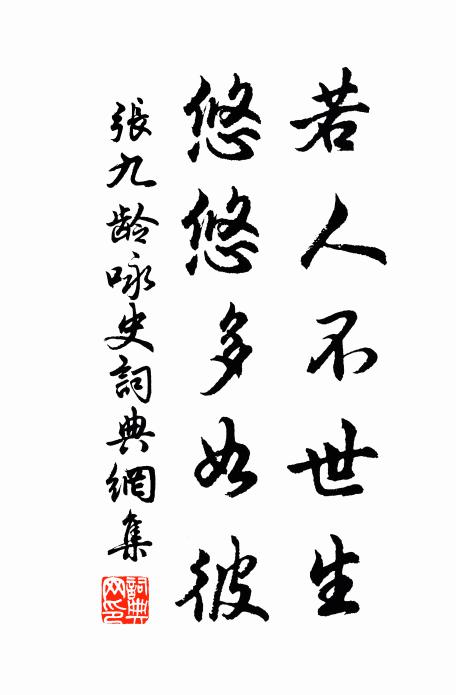 若人不世生
悠悠多如彼
張九齡咏史詞典網集
詞典网印